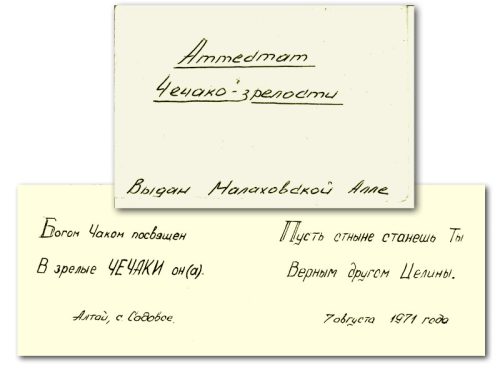 Аттестат
"Чечако"-зрелости
Выдан Малаховской Алле
Богом Чаком посвящен
В зрелые ЧЕЧАКИ он(а).
Алтай, с. Садовое.
Пусть отныне станешь Ты
Верным другом Целины.
7 августа 1971 года